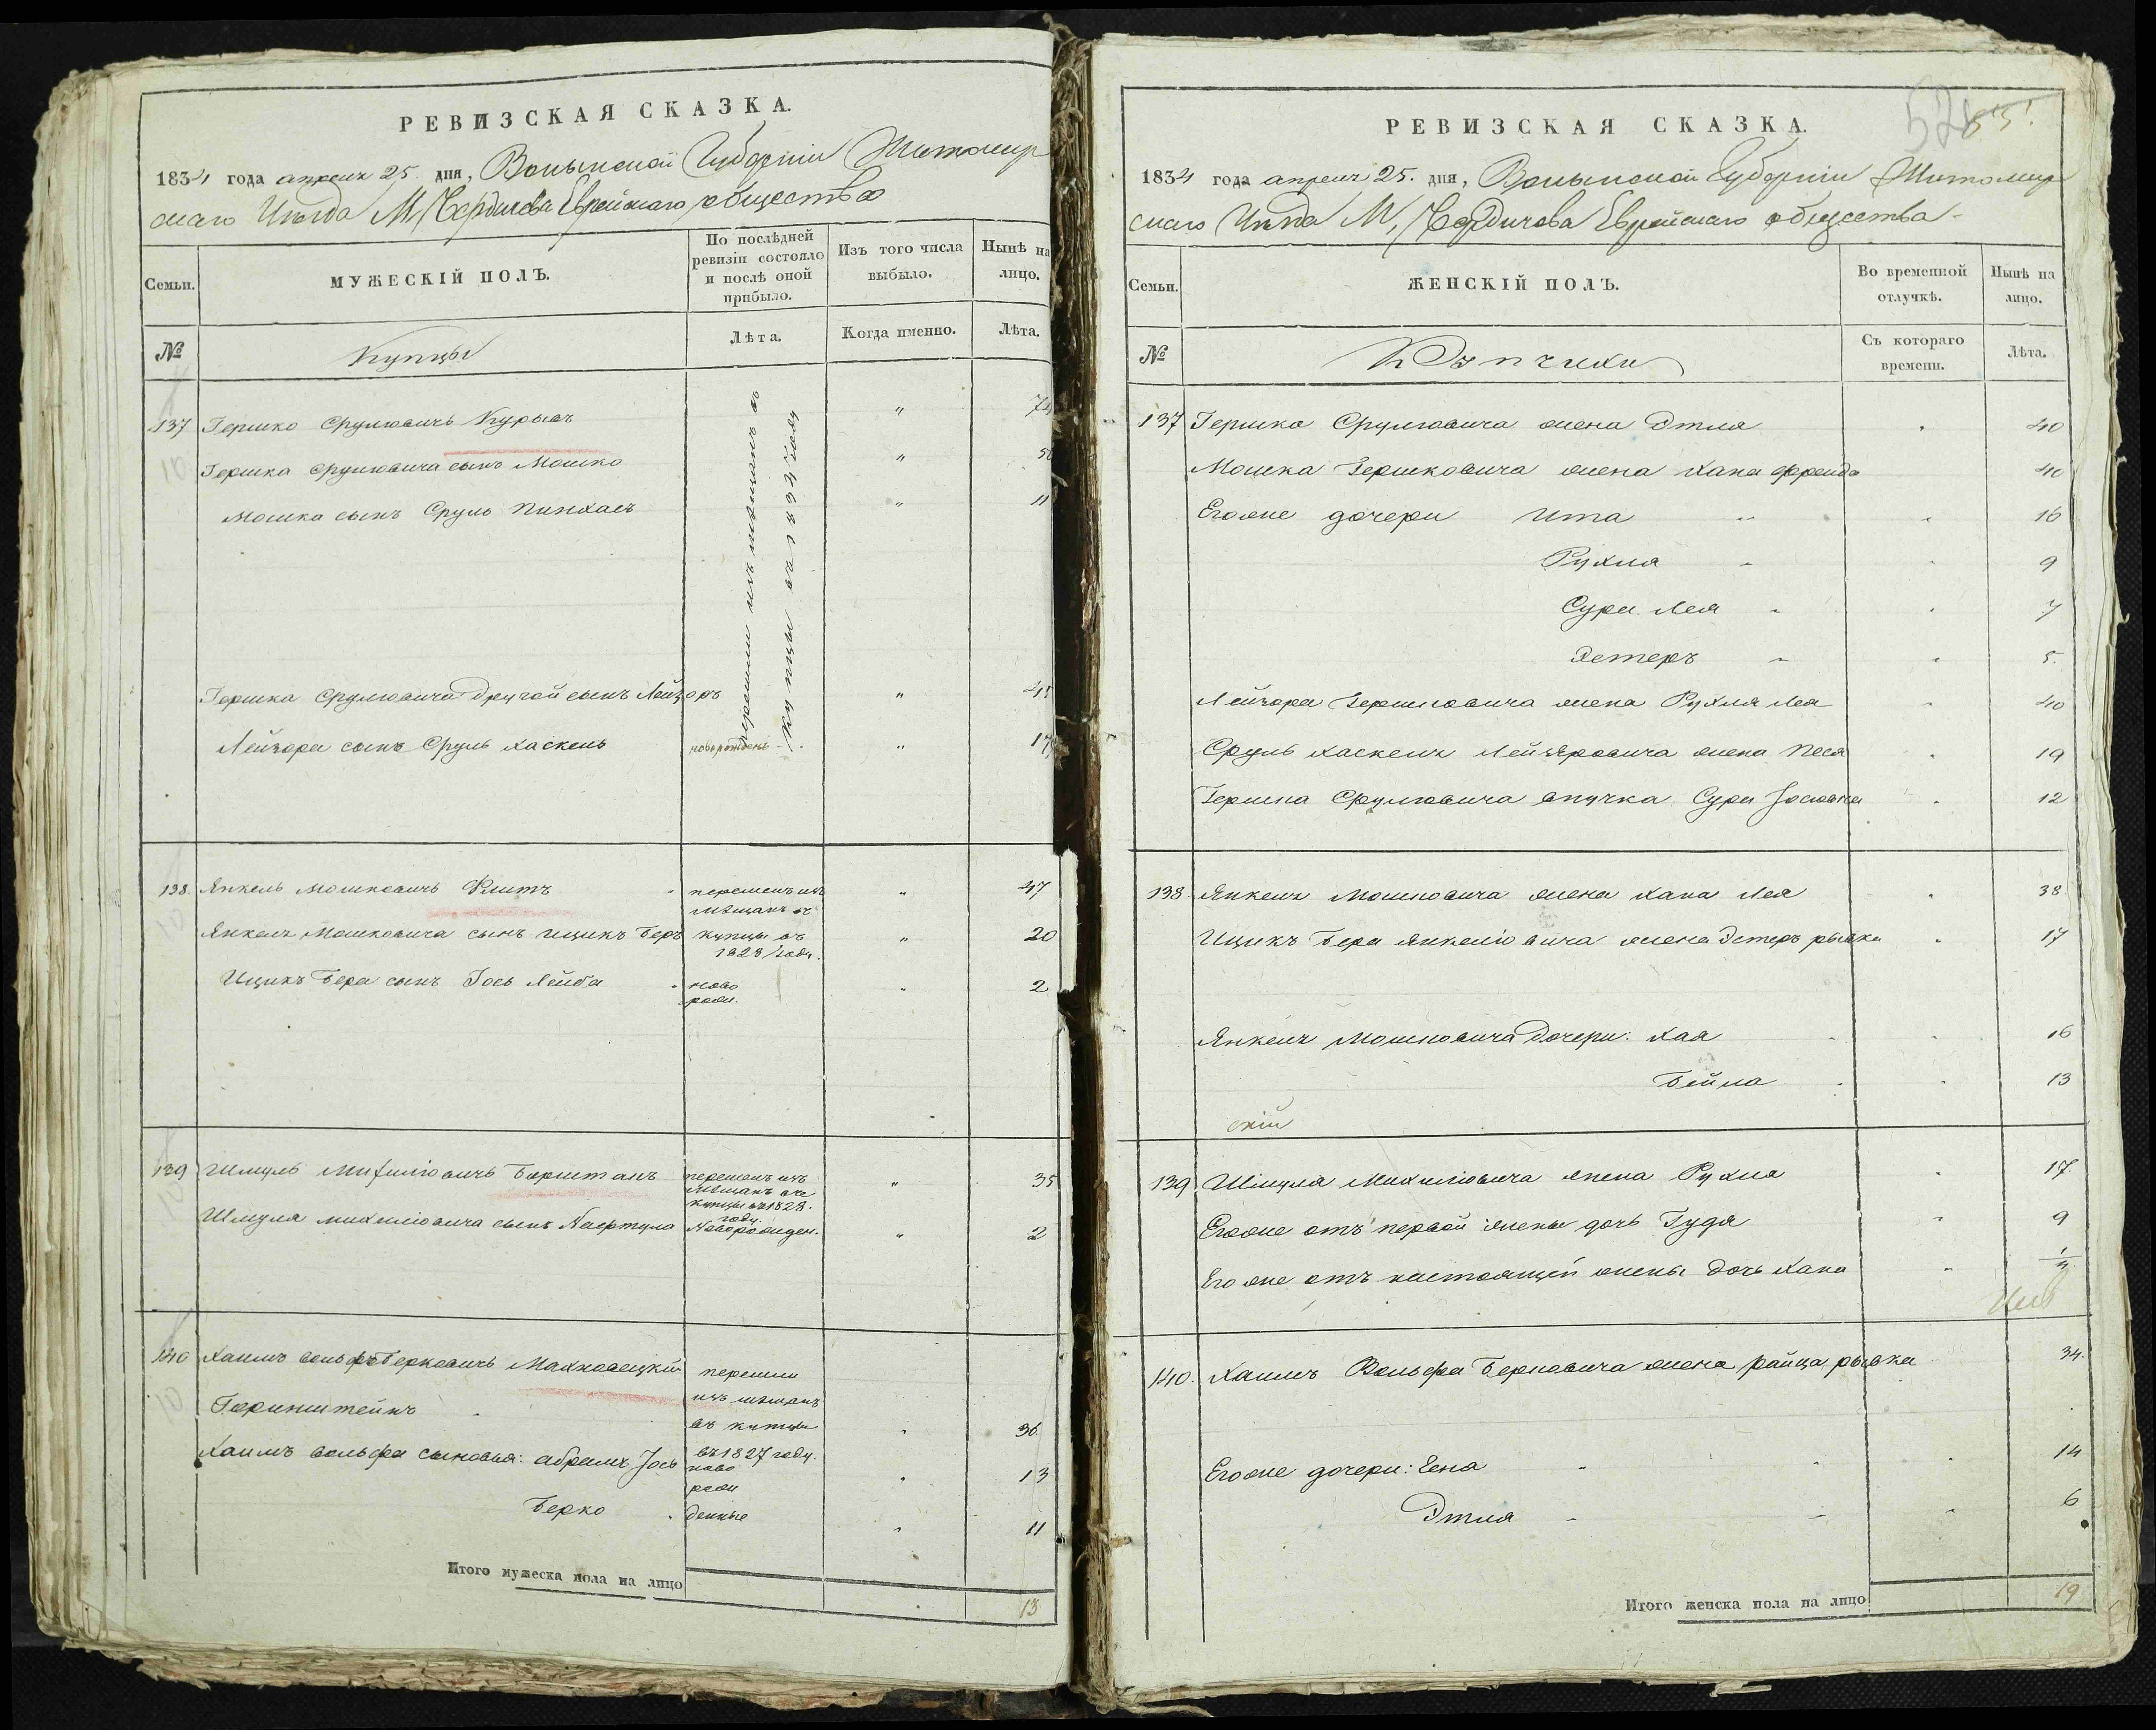 РЕВИЗСКАЯ СКАЗКА.
1834 года апреля 25. дня, Волынской Губерніи Житомир
скаго Уѣзда М, Бердичева Еврейскаго общества
Семьи.
МУЖЕСКІЙ ПОЛЪ.
По послѣдней ревизіи состояло и послѣ оной прибыло.
Изъ того числа выбыло.
Нынѣ на лицо.
№
Купцы
Лѣта.
Когда именно.
Лѣта.
перешли изъ мещанъ въ
купцы въ 1834 году
137 Гершко Срулювичъ " 74
Гершка Срулювича сынъ Мошко "
Мошка сынъ Сруль Пинхасъ " 11
Гершка Срулювича другой сынъ Лейзоръ " 45
Лейзора сынъ Сруль Хаскель новорожден " 17
138. Янкель Мошковичъ перешелъ изъ " 47
мѣщанъ въ
Янкеля Мошковича сынъ Ицикъ Беръ купцы въ " 20
1828 году.
Ицикъ Бера сынъ Іось Лейба ново " 2
рожд.
139 Шмуль Михилювичъ перешелъ изъ " 35
мѣщанъ въ
купцы въ 1828.
году.
Шмуля Михилювича сынъ Новорожден. " 2
140 Хаимъ Вольфъ Берковичъ Махновецкій перешли
изъ мѣщанъ
Горинштейнъ въ купцы " 36
въ 1827 году.
Хаимъ Вольфа сыновья: Абрамъ Іось ново " 13
рож
Берко денные " 11
Итого мужеска пола на лицо
13
РЕВИЗСКАЯ СКАЗКА.
1834 года апреля 25. дня, Волынской Губерніи Житомир
скаго Уѣзда М, Бердичева Еврейскаго общества
Семьи.
ЖЕНСКІЙ ПОЛЪ.
Во временной отлучкѣ.
Нынѣ на лицо.
№
Купчихи
Съ котораго времени.
Лѣта.
137 Гершка Срулювича жена Этля " 40
Мошка Гершковича жена Хана Фрейда 40
Его же дочери Ита " " 16
Рухля " " 9
Сура Лея " " 7
Эстеръ " " 5.
Лейзора Гершковича жена Рухля Лея " 40
Сруль Хаскеля Лейзеровича жена Песя " 19
Гершка Срулювича внучка Сура Іосіовна " 12
138. Янкеля Мошковича жена Хана Лея " 38
Ицикъ Бера Янкеліовича жена Эстеръ рывка " 17
Янкеля Мошковича дочери: Хая " " 16
Бейла " " 13
скій
139 Шмуля Михиліовича жена Рухля " 17.
Его же отъ первой жены дочь Гудя " 9
Его же отъ настоящей жены дочь Хана "
140. Хаимъ Вольфа Берковича жена райца рывка 34.
Его же дочери: " " 14
Этля " " 6
Итого женска пола на лицо
19